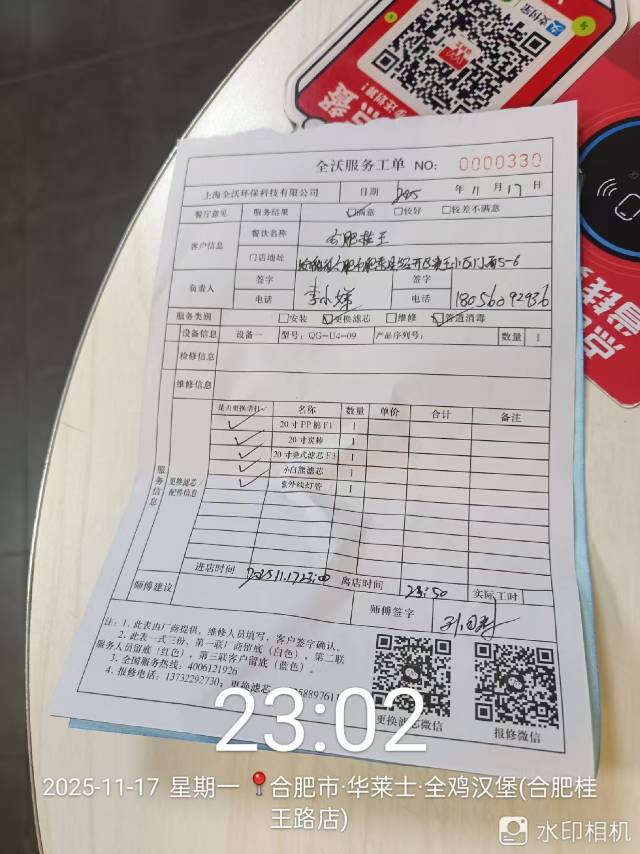 支付宝
点餐
点餐省钱
全沃服务工单 NO: 0000330
上海全沃环保科技有限公司 日期 2025 年 11 月 17 日
餐厅意见 服务结果 ☑满意 □较好 □较差不满意
客户信息 餐饮名称 合肥桂王
门店地址 小区门面5-6
负责人 签字 签字
电话 电话 18056092936
服务类别 □安装 ☑更换滤芯 □维修 ☑管道消毒
设备信息 设备一 型号: QG-U4-09 产品序列号: 数量 1
检修信息
维修信息
服务信息 更换滤芯/配件信息
是否更换请打√ 名称 数量 单价 合计 备注
✓ 20寸PP棉F1 1
✓ 20寸炭棒 1
✓ 20寸叠式滤芯F3 1
✓ 小白熊滤芯 1
✓ 紫外线灯管 1
进店时间 2025.11.17 23:00 离店时间 23:50 实际工时
师傅建议 师傅签字
注: 1. 此表由厂商提供, 维修人员填写, 客户签字确认。
2. 此表一式三份, 第一联厂商留底(白色), 第二联
服务人员留底(红色), 第三联客户留底(蓝色)。
3. 全国服务热线: 4006121926
4. 报修电话: 13732292730; 更换滤芯
更换滤芯微信
报修微信
23:02
2025-11-17 星期一 合肥市·华莱士·全鸡汉堡(合肥桂
王路店)
水印相机